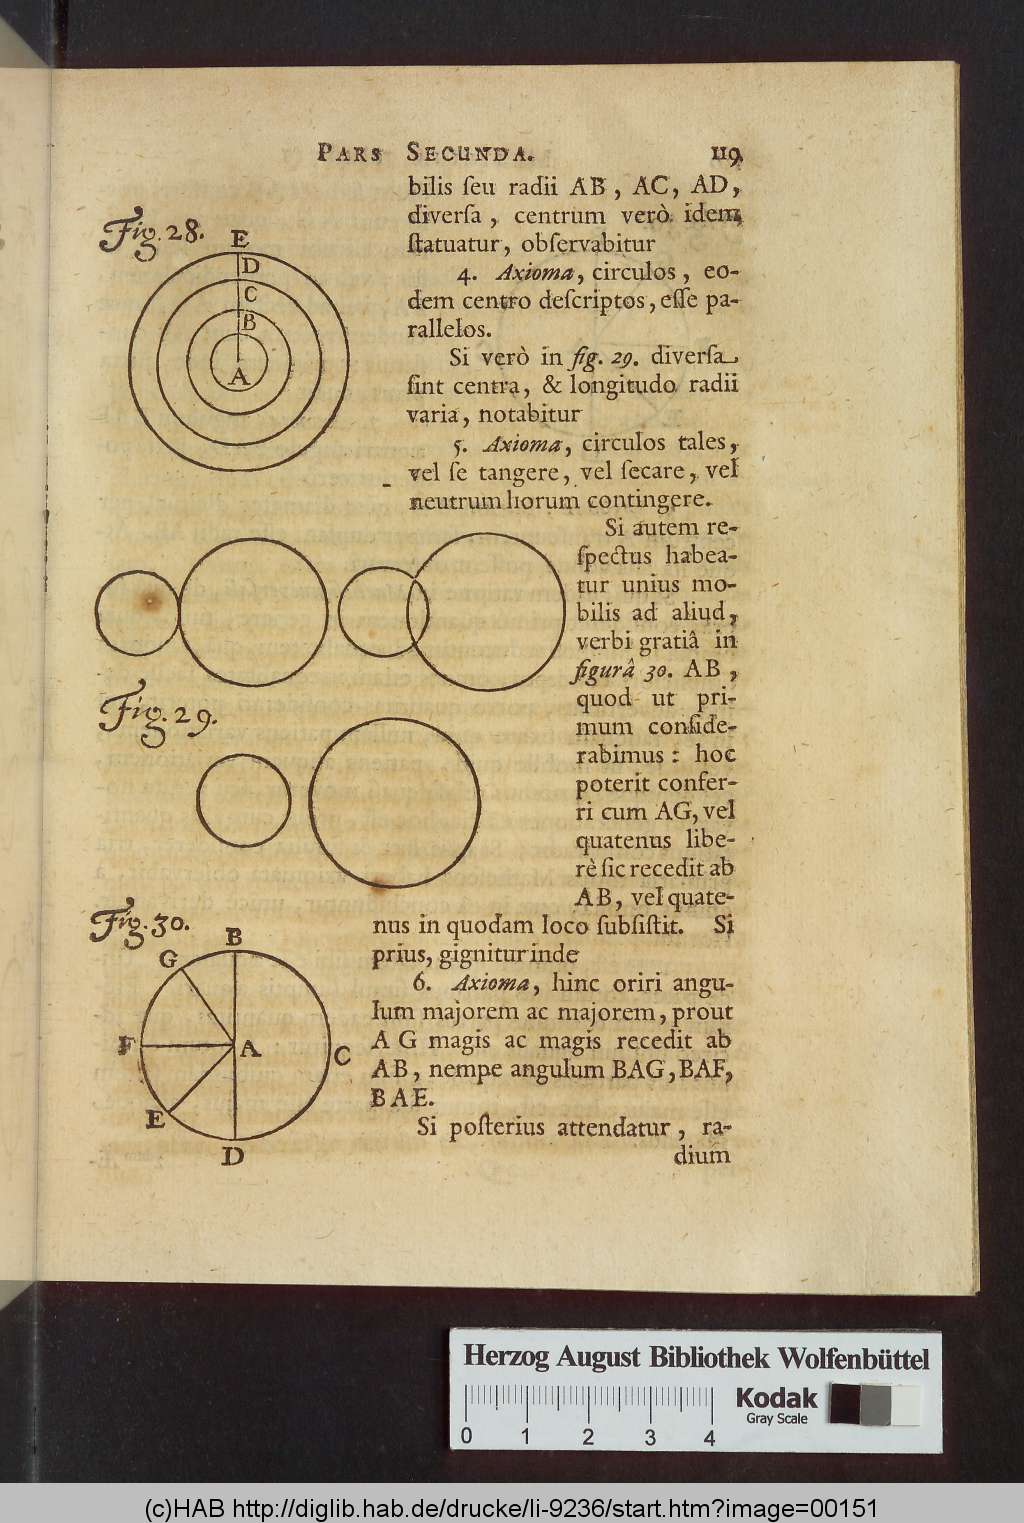 PARS SECUNDA. 119
bilis ſeu radii AB, AC, AD,
diverſa, centrum verò idem
ſtatuatur, obſervabitur
4. Axioma, circulos, eo-
dem centro deſcriptos, eſſe pa-
rallelos.
Si verò in fig. 29. diverſa
ſint centra, & longitudo radii
varia, notabitur
5. Axioma, circulos tales,
vel ſe tangere, vel ſecare, vel
neutrum horum contingere.
Si autem re-
ſpectus habea-
tur unius mo-
bilis ad aliud,
verbi gratiâ in
figurâ 30. AB,
quod ut pri-
mum conſide-
rabimus: hoc
poterit confer-
ri cum AG, vel
quatenus libe-
rè ſic recedit ab
AB, vel quate-
nus in quodam loco ſubſiſtit. Si
prius, gignitur inde
6. Axioma, hinc oriri angu-
lum majorem ac majorem, prout
AG magis ac magis recedit ab
AB, nempe angulum BAG, BAF,
BAE.
Si poſterius attendatur, ra-
dium
Fig. 28.
E
D
C
B
A
Fig. 29.
Fig. 30.
B
G
F
A
C
E
D
Herzog August Bibliothek Wolfenbüttel
Kodak
Gray Scale
0 1 2 3 4
(c)HAB http://diglib.hab.de/drucke/li-9236/start.htm?image=00151